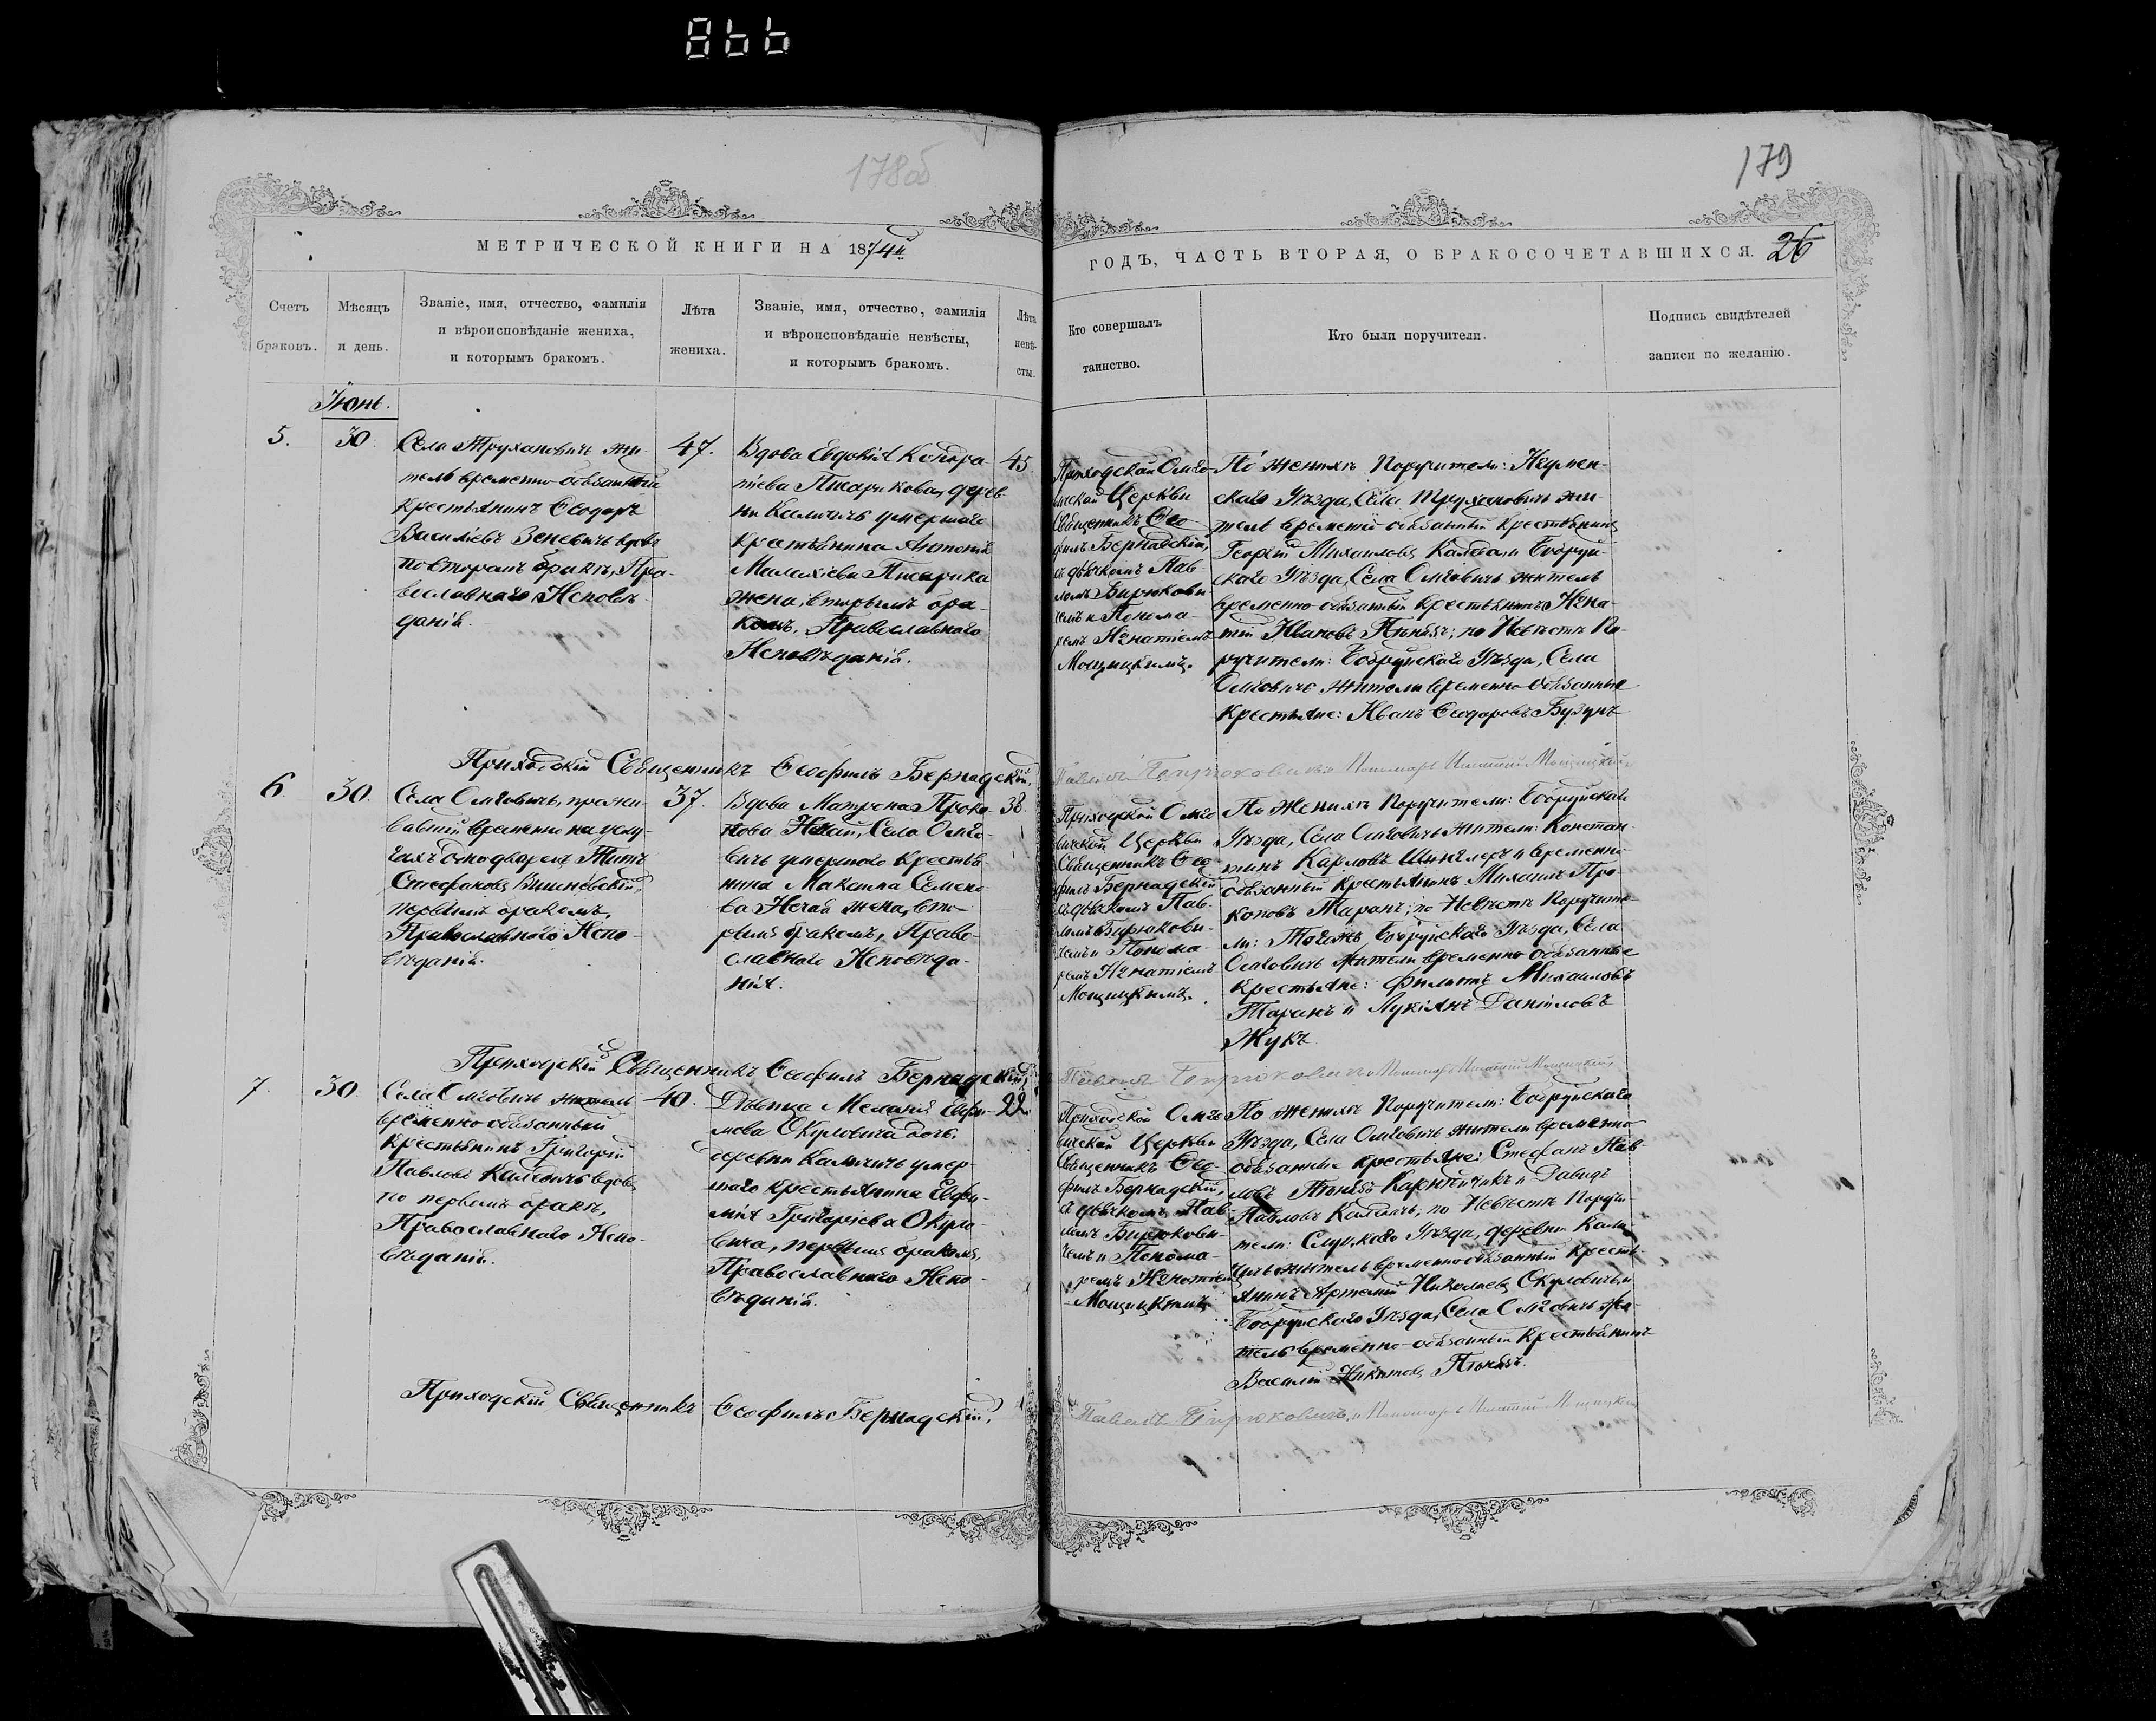 866
178об
179
МЕТРИЧЕСКОЙ КНИГИ НА 1874й
ГОДЪ, ЧАСТЬ ВТОРАЯ, О БРАКОСОЧЕТАВШИХСЯ.
26
Счетъ
браковъ.
Мѣсяцъ
и день.
Званіе, имя, отчество, фамилія
и вѣроисповѣданіе жениха,
и которымъ бракомъ.
Лѣта
жениха.
Званіе, имя, отчество, фамилія
и вѣроисповѣданіе невѣсты,
и которымъ бракомъ.
Лѣта
невѣ-
сты.
Кто совершалъ
таинство.
Кто были поручители.
Подпись свидѣтелей
записи по желанію.
Іюнь.
5.
30.
Села Трухановичъ жи-
тель временно-обязанный
крестьянинъ Ѳеодоръ
Василіевъ Зеневичъ вдовъ
по второмъ бракѣ, Пра-
вославнаго Исповѣ-
данія.
47.
Вдова Евдокія Кондра-
тіева Писарикова, дерев-
ни Каличичъ умершаго
крестьянина Антонія
Малахіева Писарика
жена, вторымъ бра-
комъ, Православнаго
Исповѣданія.
45
Приходской Омго-
вичской Церкви
Священникъ Ѳео-
филъ Бернадскій,
съ дьячкомъ Пав-
ломъ Бирюкови-
чемъ и Понома-
ремъ Игнатіемъ
Мощицкимъ.
По женихѣ Поручители: Игумен-
скаго Уѣзда, Села Трухановичъ жи-
тель временно обязанный крестьянинъ
Георгій Михаиловъ и Бобруй-
скаго Уѣзда, Села Омговичъ житель
временно обязанный крестьянинъ Игна-
тій Ивановъ; по Невѣстѣ По-
ручители: Бобруйскаго Уѣзда, Села
Омговичъ жители временно-обязанные
крестьяне: Иванъ Ѳеодоровъ
Приходскій Священникъ Ѳеофилъ Бернадскій,
6.
30.
Села Омговичъ, прожи-
вавшій временно на услу-
гахъ однодворецъ Титъ
Стефановъ Вишневскій,
первымъ бракомъ,
Православнаго Испо-
вѣданія.
37.
Вдова Матрона Проко-
пова, Села Омго-
вичъ умершаго крестья-
нина Максима Семено-
ва Нечая жена, вто-
рымъ бракомъ, Право-
славнаго Исповѣда-
нія.
38.
Приходской Омго-
вичской Церкви
Священникъ Ѳео-
филъ Бернадскій
съ дьячкомъ Пав-
ломъ Бирюкови-
чемъ и Понома-
ремъ Игнатіемъ
Мощицкимъ.
По Женихѣ Поручители: Бобруйскаго
Уѣзда, Села Омговичъ жители: Констан-
тинъ Карловъ и временно-
обязанный крестьянинъ Михаилъ Про-
коповъ Таранъ; по Невѣстѣ Поручите-
ли: Тогожъ Бобруйскаго Уѣзда, Села
Омговичъ жители временно обязанные
крестьяне: Филиппъ Михаиловъ
Таранъ и Лукіянъ Даніиловъ
Жукъ.
Приходскій Священникъ Ѳеофилъ Бернадскій,
7.
30.
Села Омговичъ житель
временно-обязанный
крестьянинъ Григорій
Павловъ вдовъ
по первомъ бракѣ,
Православнаго Испо-
вѣданія.
40.
Дѣвица Меланія Евфи-
мова Окуловича дочь,
деревни Каличичъ умер-
шаго крестьянина Евфи-
мія Григоріева Окуло-
вича, первымъ бракомъ,
Православнаго Испо-
вѣданія.
22.
Приходской Омго-
вичской Церкви
Священникъ Ѳео-
филъ Бернадскій,
съ дьячкомъ Пав-
ломъ Бирюкови-
чемъ и Понома-
ремъ Игнатіемъ
Мощицкимъ
По женихѣ Поручители: Бобруйскаго
Уѣзда, Села Омговичъ жители временно
обязанные крестьяне: Стефанъ Пав-
ловъ и Давидъ
Павловъ; по Невѣстѣ Поручи-
тели: Слуцкаго Уѣзда, деревни Кали-
чичъ житель временно обязанный кресть-
янинъ Артемій Николаевъ Окуловичъ, и
Бобруйскаго Уѣзда, Села Омговичъ жи-
тель временно-обязанный крестьянинъ
Василій Никитовъ
Приходскій Священникъ Ѳеофилъ Бернадскій,
Павелъ Бирюковичъ, и Пономарь Игнатій Мощицкій